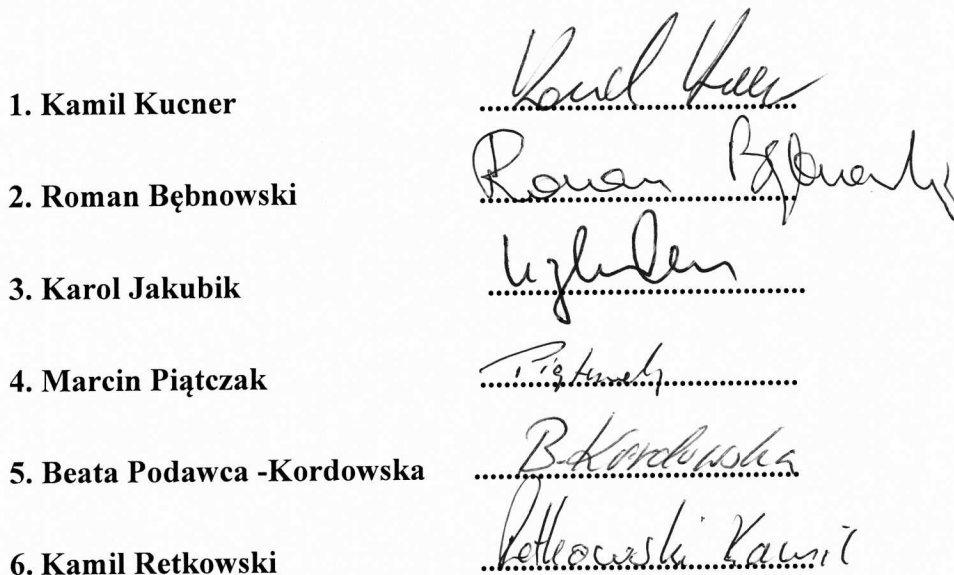 1. Kamil Kucner
2. Roman Bębnowski Roman
3. Karol Jakubik
4. Marcin Piątczak
5. Beata Podawca -Kordowska B. Kordowska
6. Kamil Retkowski Retkowski Kamil